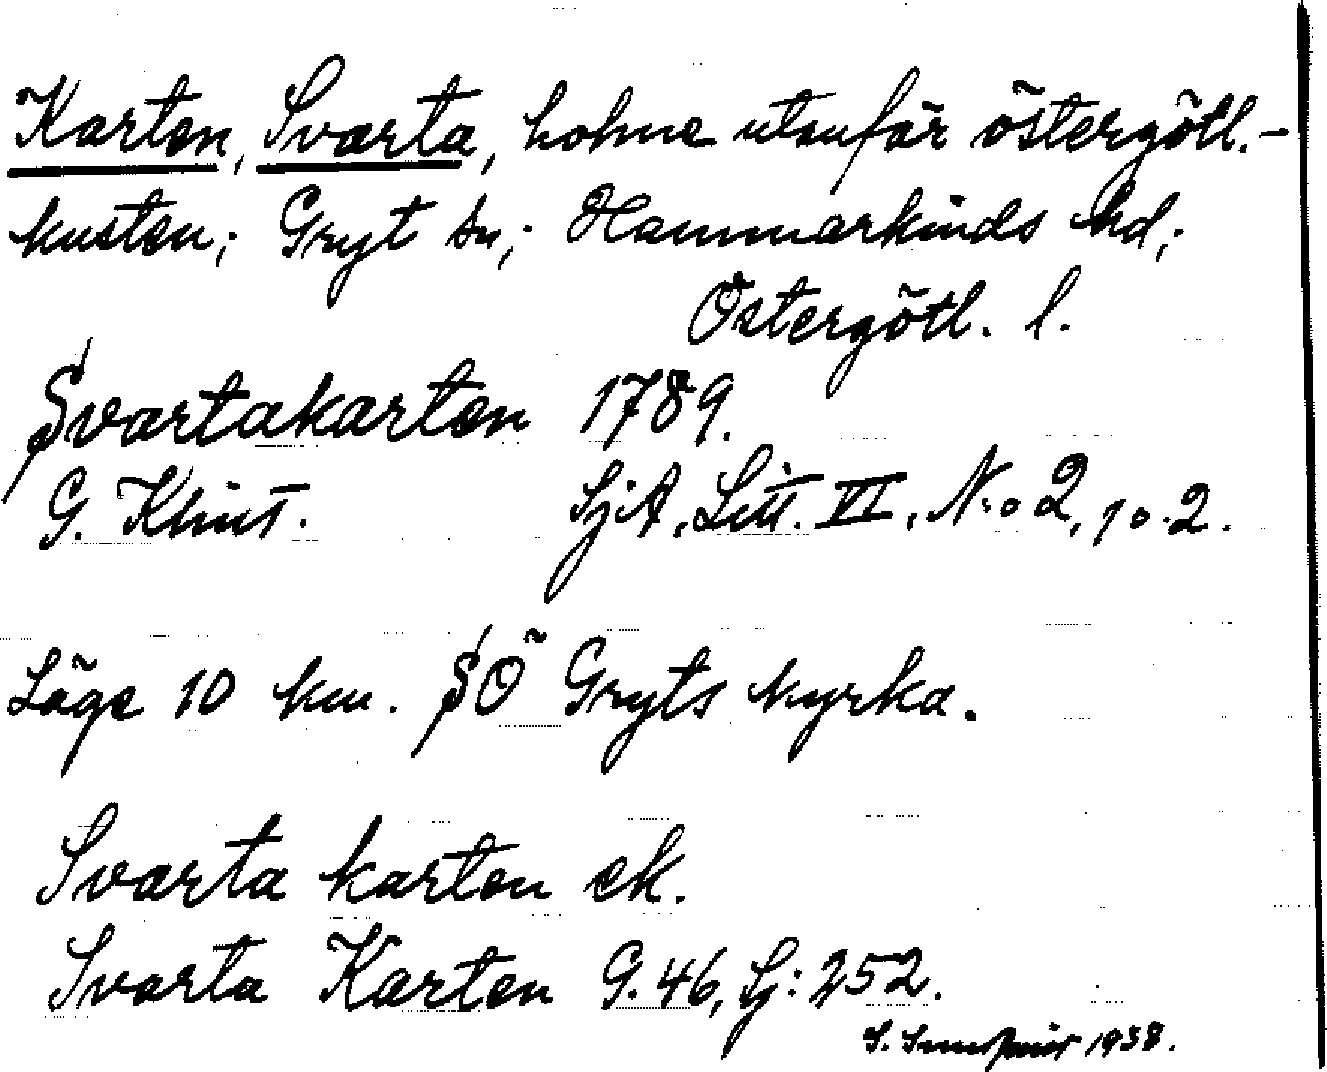 Karten, Svarta, holme utanför östergötl.-
kusten; Gryt sn; Hammarkinds hd;
Östergötl. l.
Svartakarten 1789.
G. Klint. SjA, Litt. VI, N:o 2, 10.2.
Läge 10 km. SÖ Gryts kyrka.
Svarta karten ek.
Svarta Karten G. 46, Sj: 252.
S. 1938.